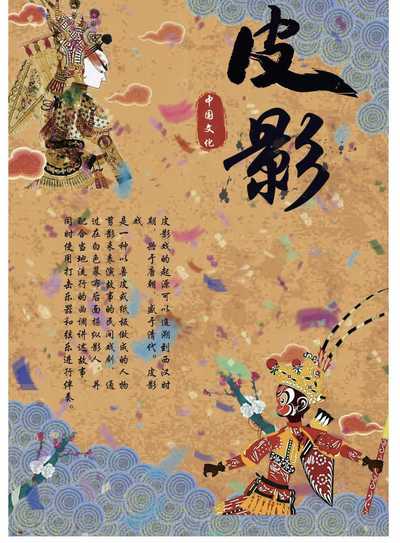 皮影
中国文化
皮影戏的起源可以追溯到西汉时
期，兴于唐朝，盛于清代。皮影
戏
是一种以兽皮或纸板做成的人物
剪影来表演故事的民间戏剧，通
过在白色幕布后面操纵影人，并
配合当地流行的曲调讲述故事，
同时使用打击乐器和弦乐进行伴奏。